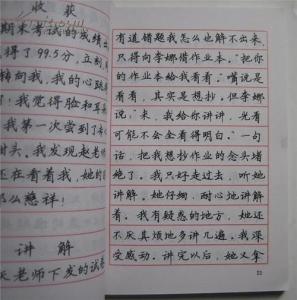 收获
期末考试的成绩出
得了99.5分，立刻，
转向我，我的心跳
！我觉得脸和耳
我第一次尝到了
甜头。我发现赵老
还在看着我，她的
那么慈祥！
讲解
天老师下发的试卷
有道错题我怎么也解不出来，
只得向李娜借作业本。“把你
的作业本给我看看。”嘴说是
看看，其实是想抄。但李娜
说：“来，我给你讲讲，光看
可能不会全看得明白。”一句
话，把我想抄作业的念头堵
绝了。我只好走过去，听她
讲解。她仔细、耐心地讲解
着。我有疑惑的地方，她还
不厌其烦地多讲几遍。我深
受感动。讲完以后，她又拿